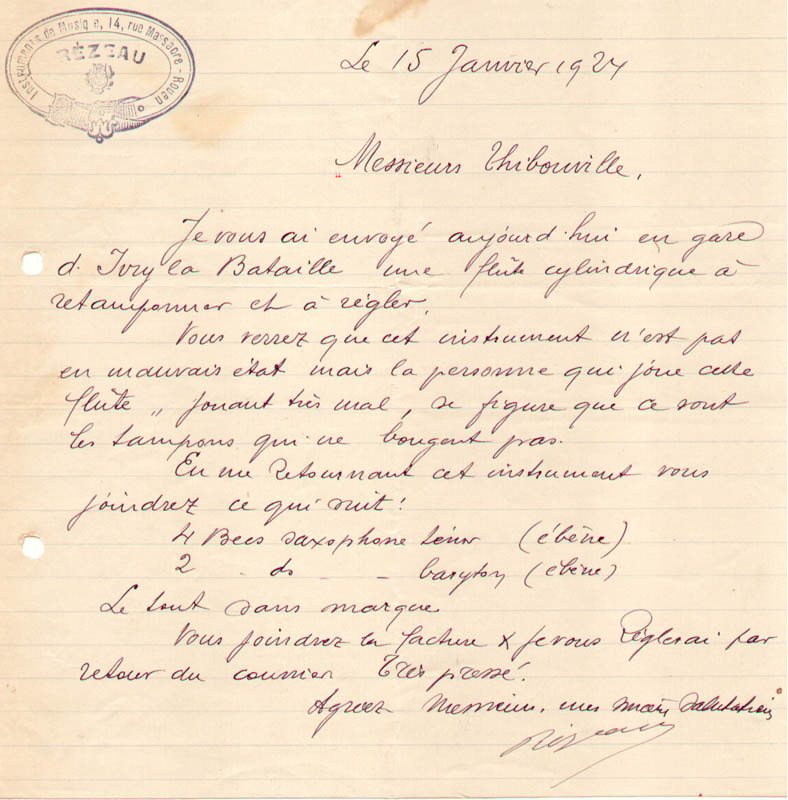 Instruments de Musique, 14, rue Massacre - Rouen
RÉZEAU
Le 15 Janvier 1924
Messieurs Thibouville,
Je vous ai envoyé aujourd'hui en gare
d. Ivry la Bataille une flûte cylindrique à
retamponner et à régler.
Vous verrez que cet instrument n'est pas
en mauvais état mais la personne qui joue cette
flûte ,, jouant très mal, se figure que ce sont
les tampons qui ne bougent pas.
En me retournant cet instrument vous
joindrez ce qui suit :
4 Becs saxophone ténor (ébène)
2 - do - - baryton (ébène)
Le tout sans marque
Vous joindrez la facture & je vous règlerai par
retour du courrier Très pressé.
Agréez Messieurs, mes sincères salutations
Rézeau